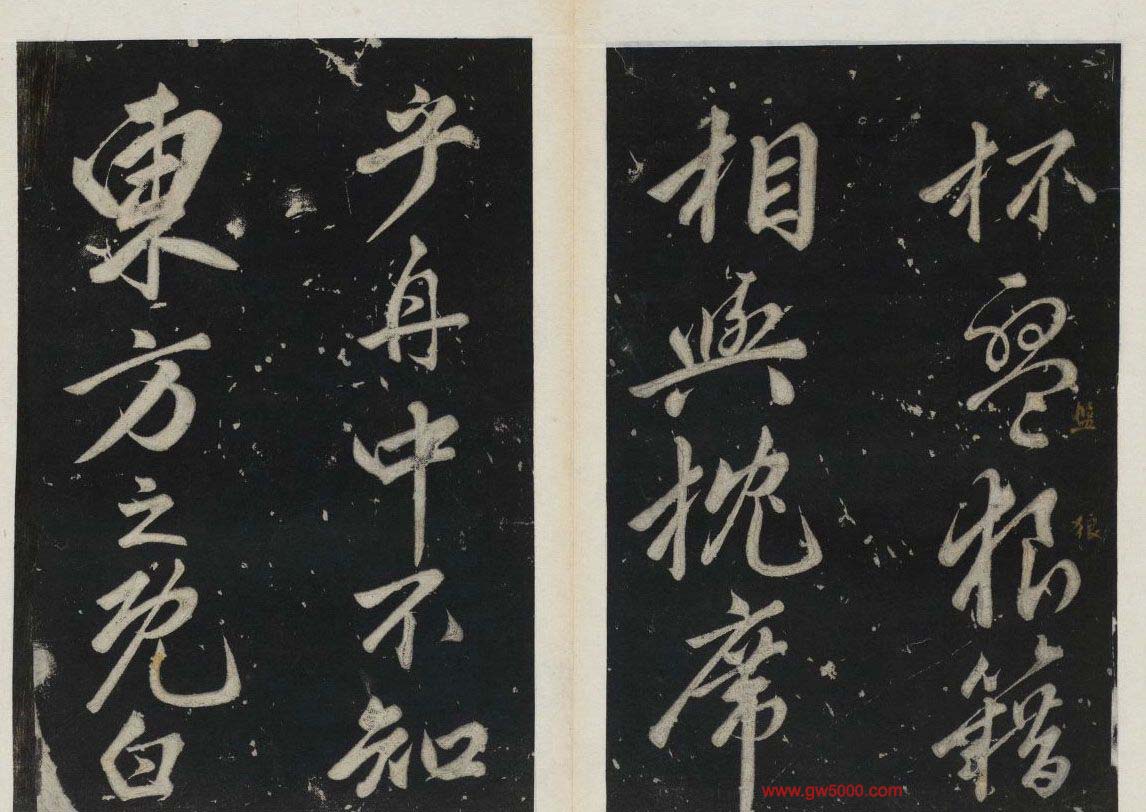 杯盤狼籍
相與枕席
乎舟中不知
東方之既白
盤
狼
www.gw5000.com